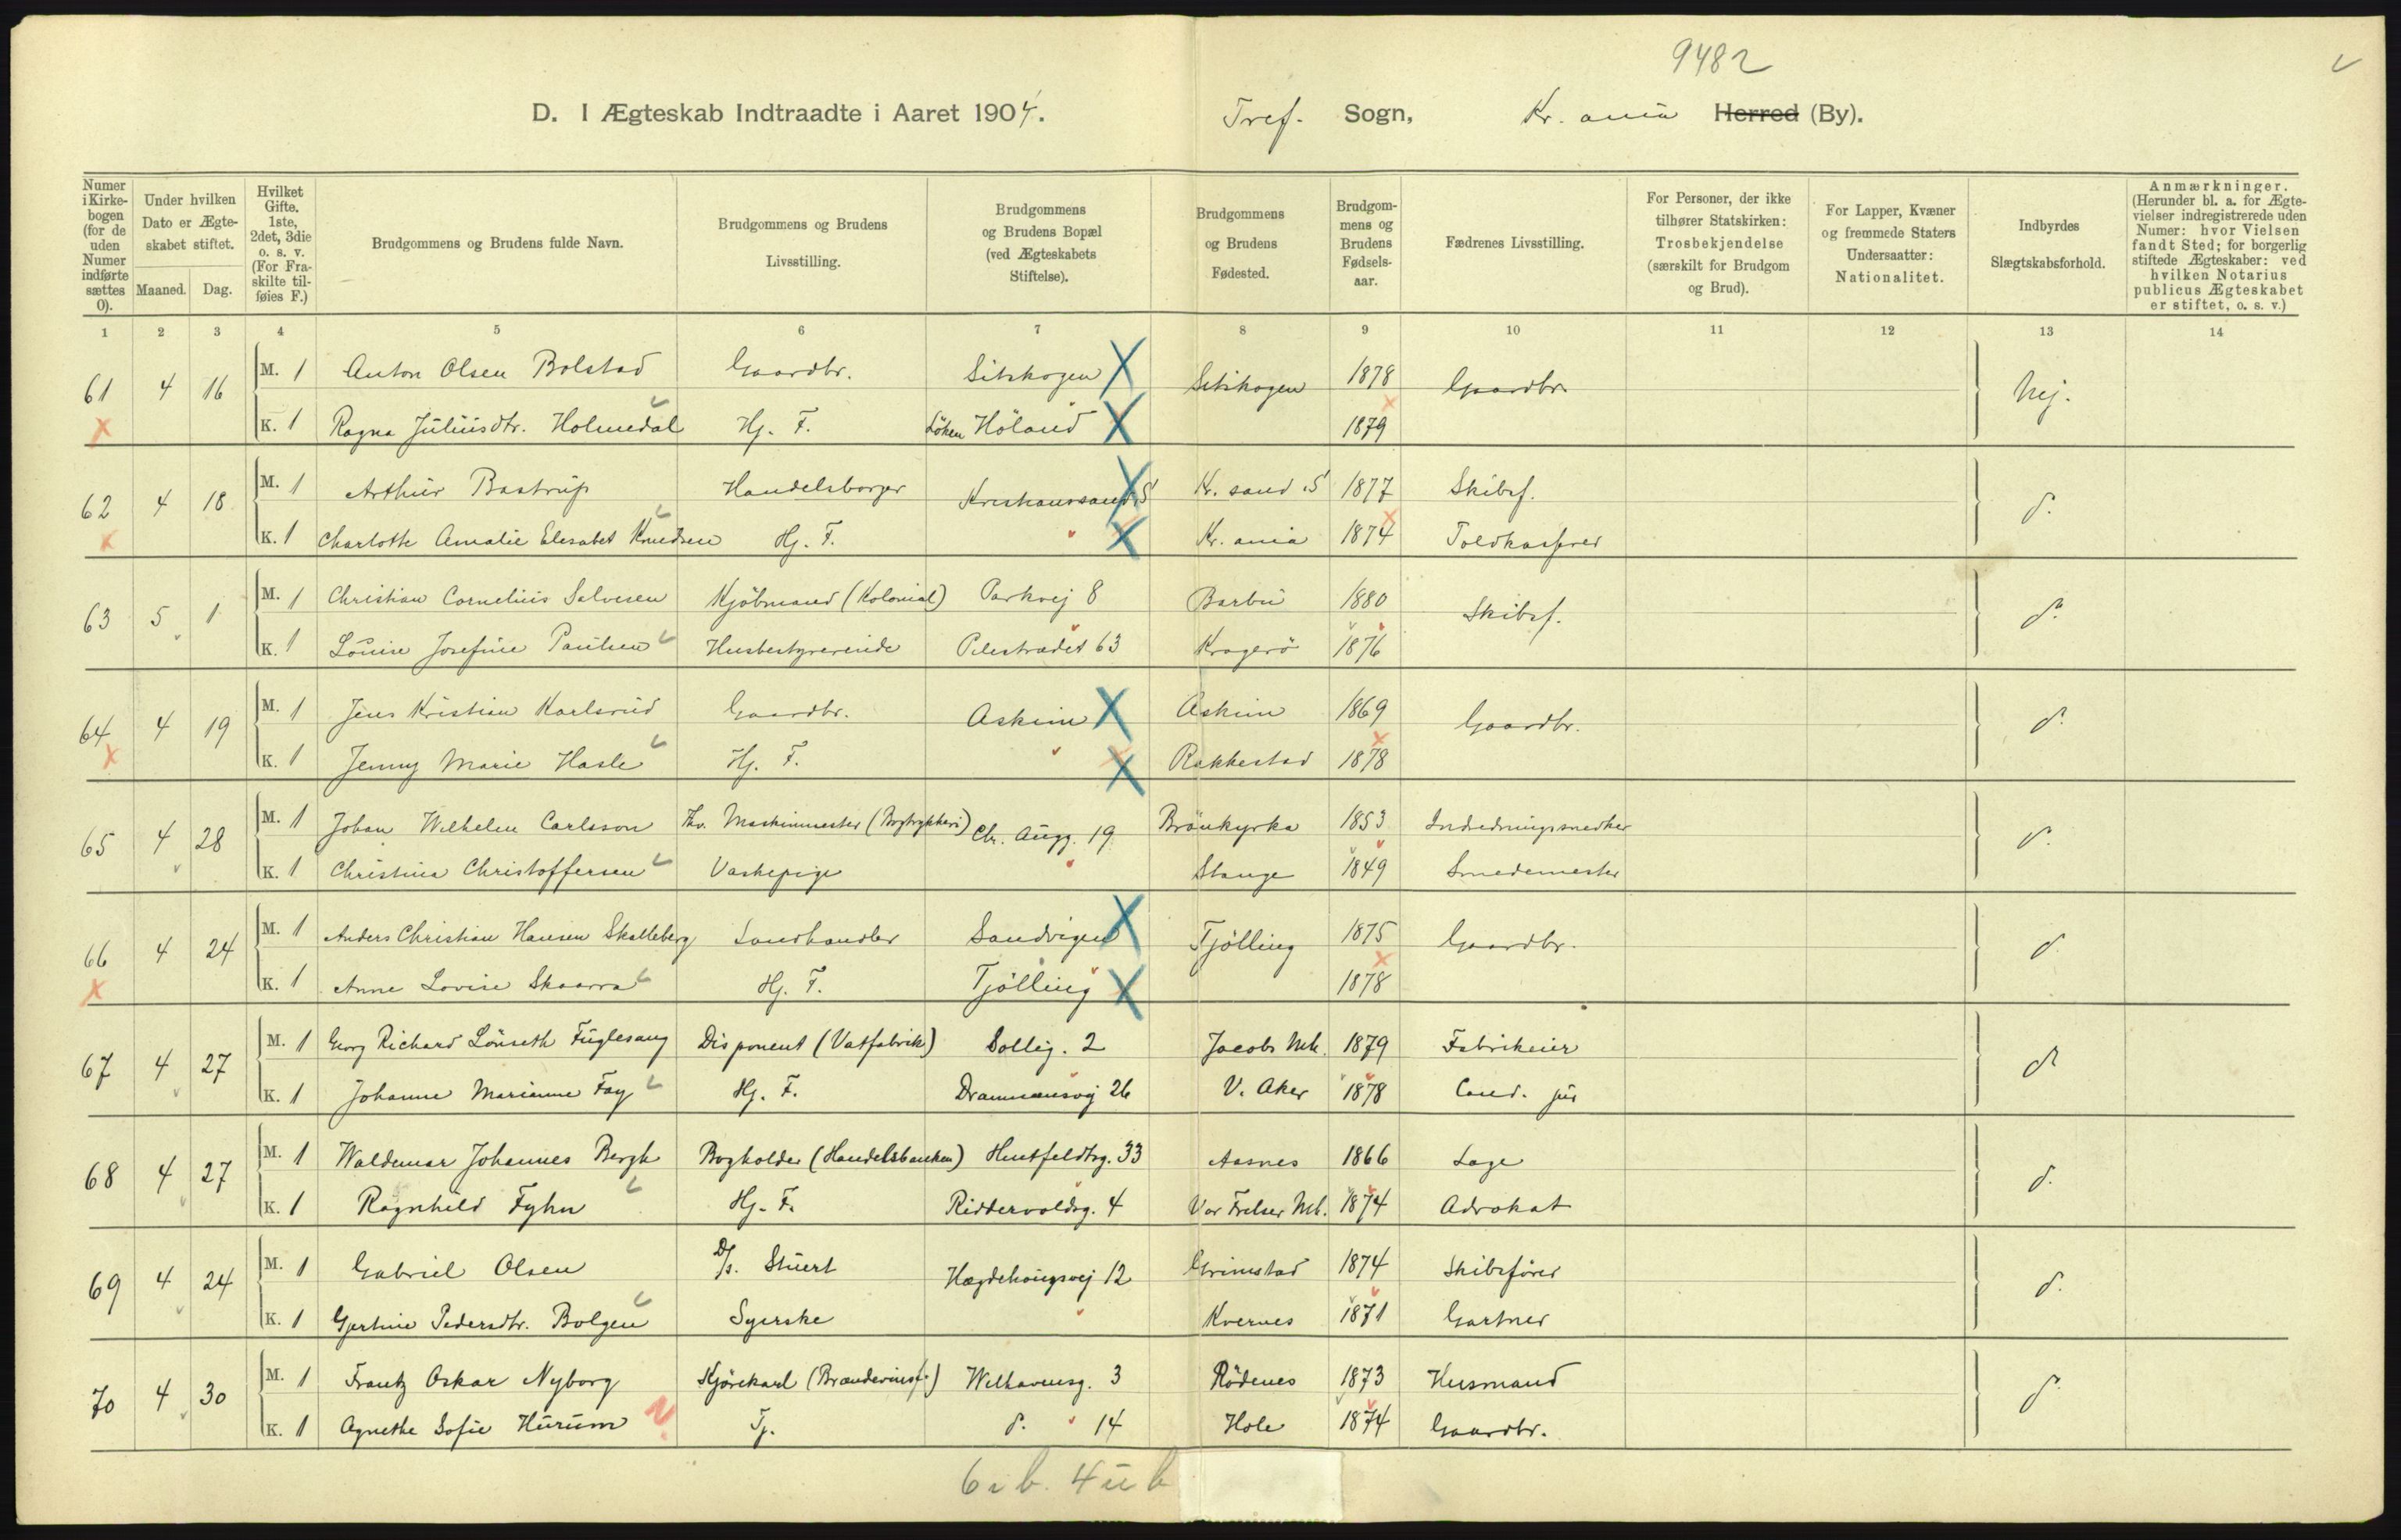 9482
D. I Ægteskab Indtraadte i Aaret 1904. Tref. Sogn, Kr. ania Herred (By).
Numer i Kirkebogen (for de uden Numer indførte sættes 0).
Under hvilken Dato er Ægteskabet stiftet.
Maaned. Dag.
Hvilket Gifte. 1ste, 2det, 3die o. s. v. (For Fraskilte tilføies F.)
Brudgommens og Brudens fulde Navn.
Brudgommens og Brudens Livsstilling.
Brudgommens og Brudens Bopæl (ved Ægteskabets Stiftelse).
Brudgommens og Brudens Fødested.
Brudgommens og Brudens Fødselsaar.
Fædrenes Livsstilling.
For Personer, der ikke tilhører Statskirken: Trosbekjendelse (særskilt for Brudgom og Brud).
For Lapper, Kvæner og fremmede Staters Undersaatter: Nationalitet.
Indbyrdes Slægtskabsforhold.
Anmærkninger. (Herunder bl. a. for Ægtevielser indregistrerede uden Numer: hvor Vielsen fandt Sted; for borgerlig stiftede Ægteskaber: ved hvilken Notarius publicus Ægteskabet er stiftet, o. s. v.)
1 2 3 4 5 6 7 8 9 10 11 12 13 14
61 4 16 M. 1 Anton Olsen Bolstad Gaardbr. Sitskogen Setskogen 1878 Gaardbr. Nej.
K. 1 Ragna Juliusdtr. Holmedal Hj. F. Löken Höland 1879
62 4 18 M. 1 Arthur Bastrup Handelsborger Kristianssand S Kr. sand S 1877 Skibsf. d.
K. 1 Charlotte Amalie Elesabet Knudsen Hj. F. " Kr. ania 1874 Toldkasserer
63 5 1 M. 1 Christian Cornelius Salvesen Kjöbmand (Kolonial) Parkvej 8 Barbu 1880 Skibsf. d.
K. 1 Louise Josefine Paulsen Husbestyrerinde Pilestrædet 63 Kragerö 1876
64 4 19 M. 1 Jens Kristian Karlsrud Gaardbr. Askim Askim 1869 Gaardbr. d.
K. 1 Jenny Marie Hasle Hj. F. " Rakkestad 1878
65 4 28 M. 1 Johan Wilhelm Carlsson Fhv. Maskinmester (Bogtrykkeri) Chr. Augg. 19 Brönkyrka 1853 Indredningssnedker d.
K. 1 Christina Christoffersen Vaskepige " Stange 1849 Smedemester
66 4 24 M. 1 Anders Christian Hansen Skalleberg Landhandler Sandvigen Tjölling 1875 Gaardbr. d.
K. 1 Anne Lovise Skaarra Hj. F. Tjölling 1878
67 4 27 M. 1 Georg Richard Lönseth Fuglesang Disponent (Vatfabrik) Sollig. 2 Jacobs Mh. 1879 Fabrikeier d.
K. 1 Johanne Marianne Fay Hj. F. Drammensvej 26 V. Aker 1878 Cand. jur
68 4 27 M. 1 Waldemar Johannes Bergh Bogholder (Handelsbanken) Huitfeldtsg. 33 Aasnes 1866 Læge d.
K. 1 Ragnhild Fyhn Hj. F. Riddervoldsg. 4 Vor Frelser Mh. 1874 Advokat
69 4 24 M. 1 Gabriel Olsen D/s. Stuert Hægdehaugsvej 12 Grimstad 1874 Skibsförer d.
K. 1 Gjertine Pedersdtr. Bolgen Syerske " Kvernes 1871 Gartner
70 4 30 M. 1 Frantz Oskar Nyborg Kjörekarl (Brændevinsf.) Welhavensg. 3 Rödenes 1873 Husmand d.
K. 1 Agnethe Sofie Hurum Tj. d. " 14 Hole 1874 Gaardbr.
6 i b. 4 u b